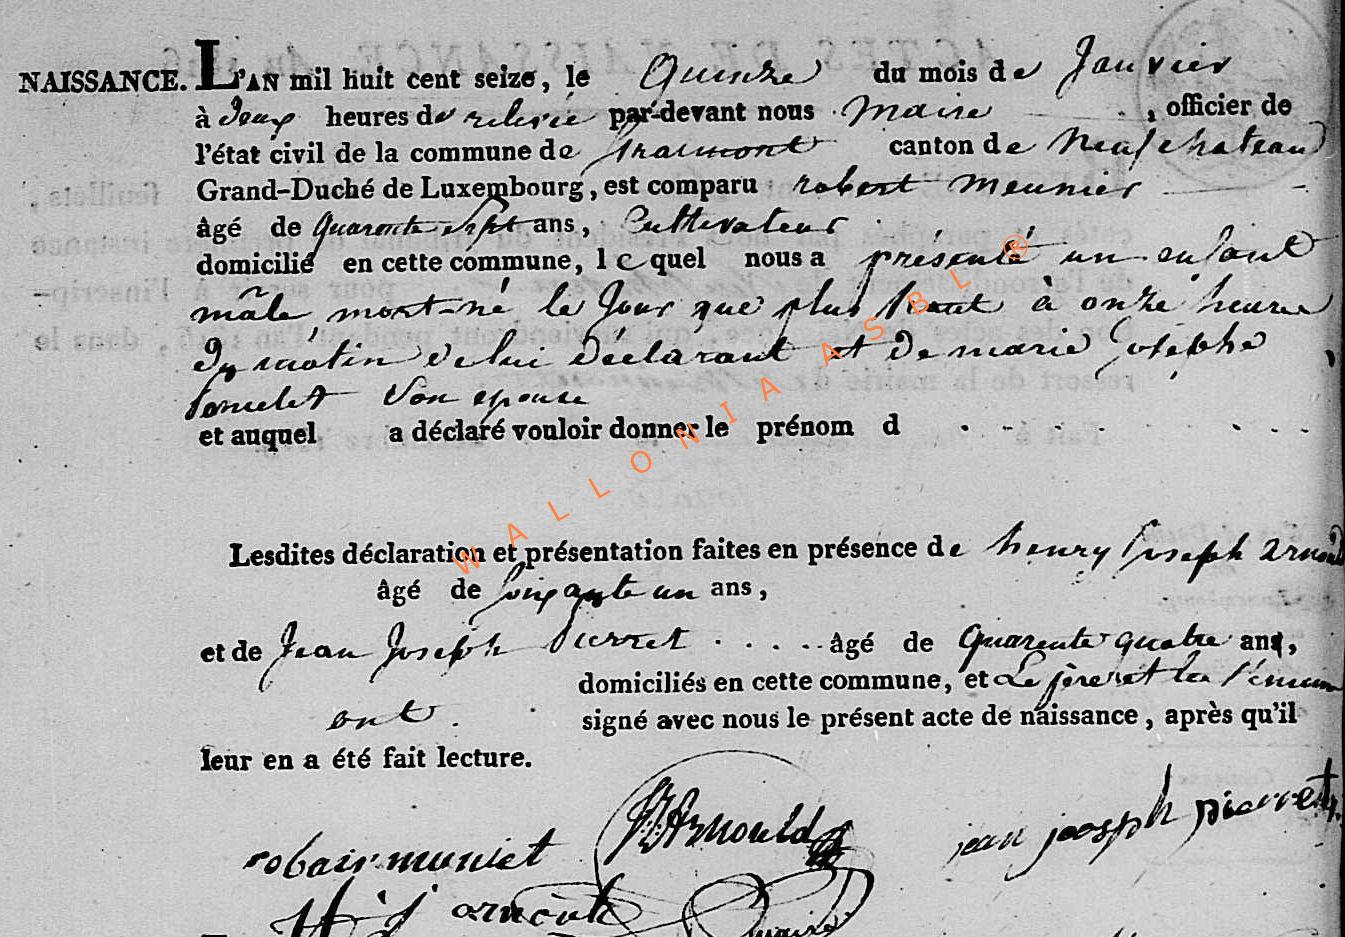 NAISSANCE. L'AN mil huit cent seize, le Quinze du mois de Janvier
à deux heures de relevée par-devant nous maire , officier de
l'état civil de la commune de Tramont canton de neufchateau
Grand-Duché de Luxembourg, est comparu robert meunier
âgé de quarante sept ans, Cultivateur
domicilié en cette commune, lequel nous a présenté un enfant
mâle, mort-né le Jour que plus haut à onze heures
du matin de lui déclarant et de marie Josephe
son epouse
et auquel a déclaré vouloir donner le prénom d
Lesdites déclaration et présentation faites en présence de henry Joseph arnould
âgé de soixante un ans,
et de Jean Joseph Pierret âgé de Quarente quatre ans,
domiciliés en cette commune, et Le père et les témoins
ont signé avec nous le présent acte de naissance, après qu'il
leur en a été fait lecture.
robair muniet Arnould jean joseph pierret
H J arnould maire
WALLONIA ASBL ®